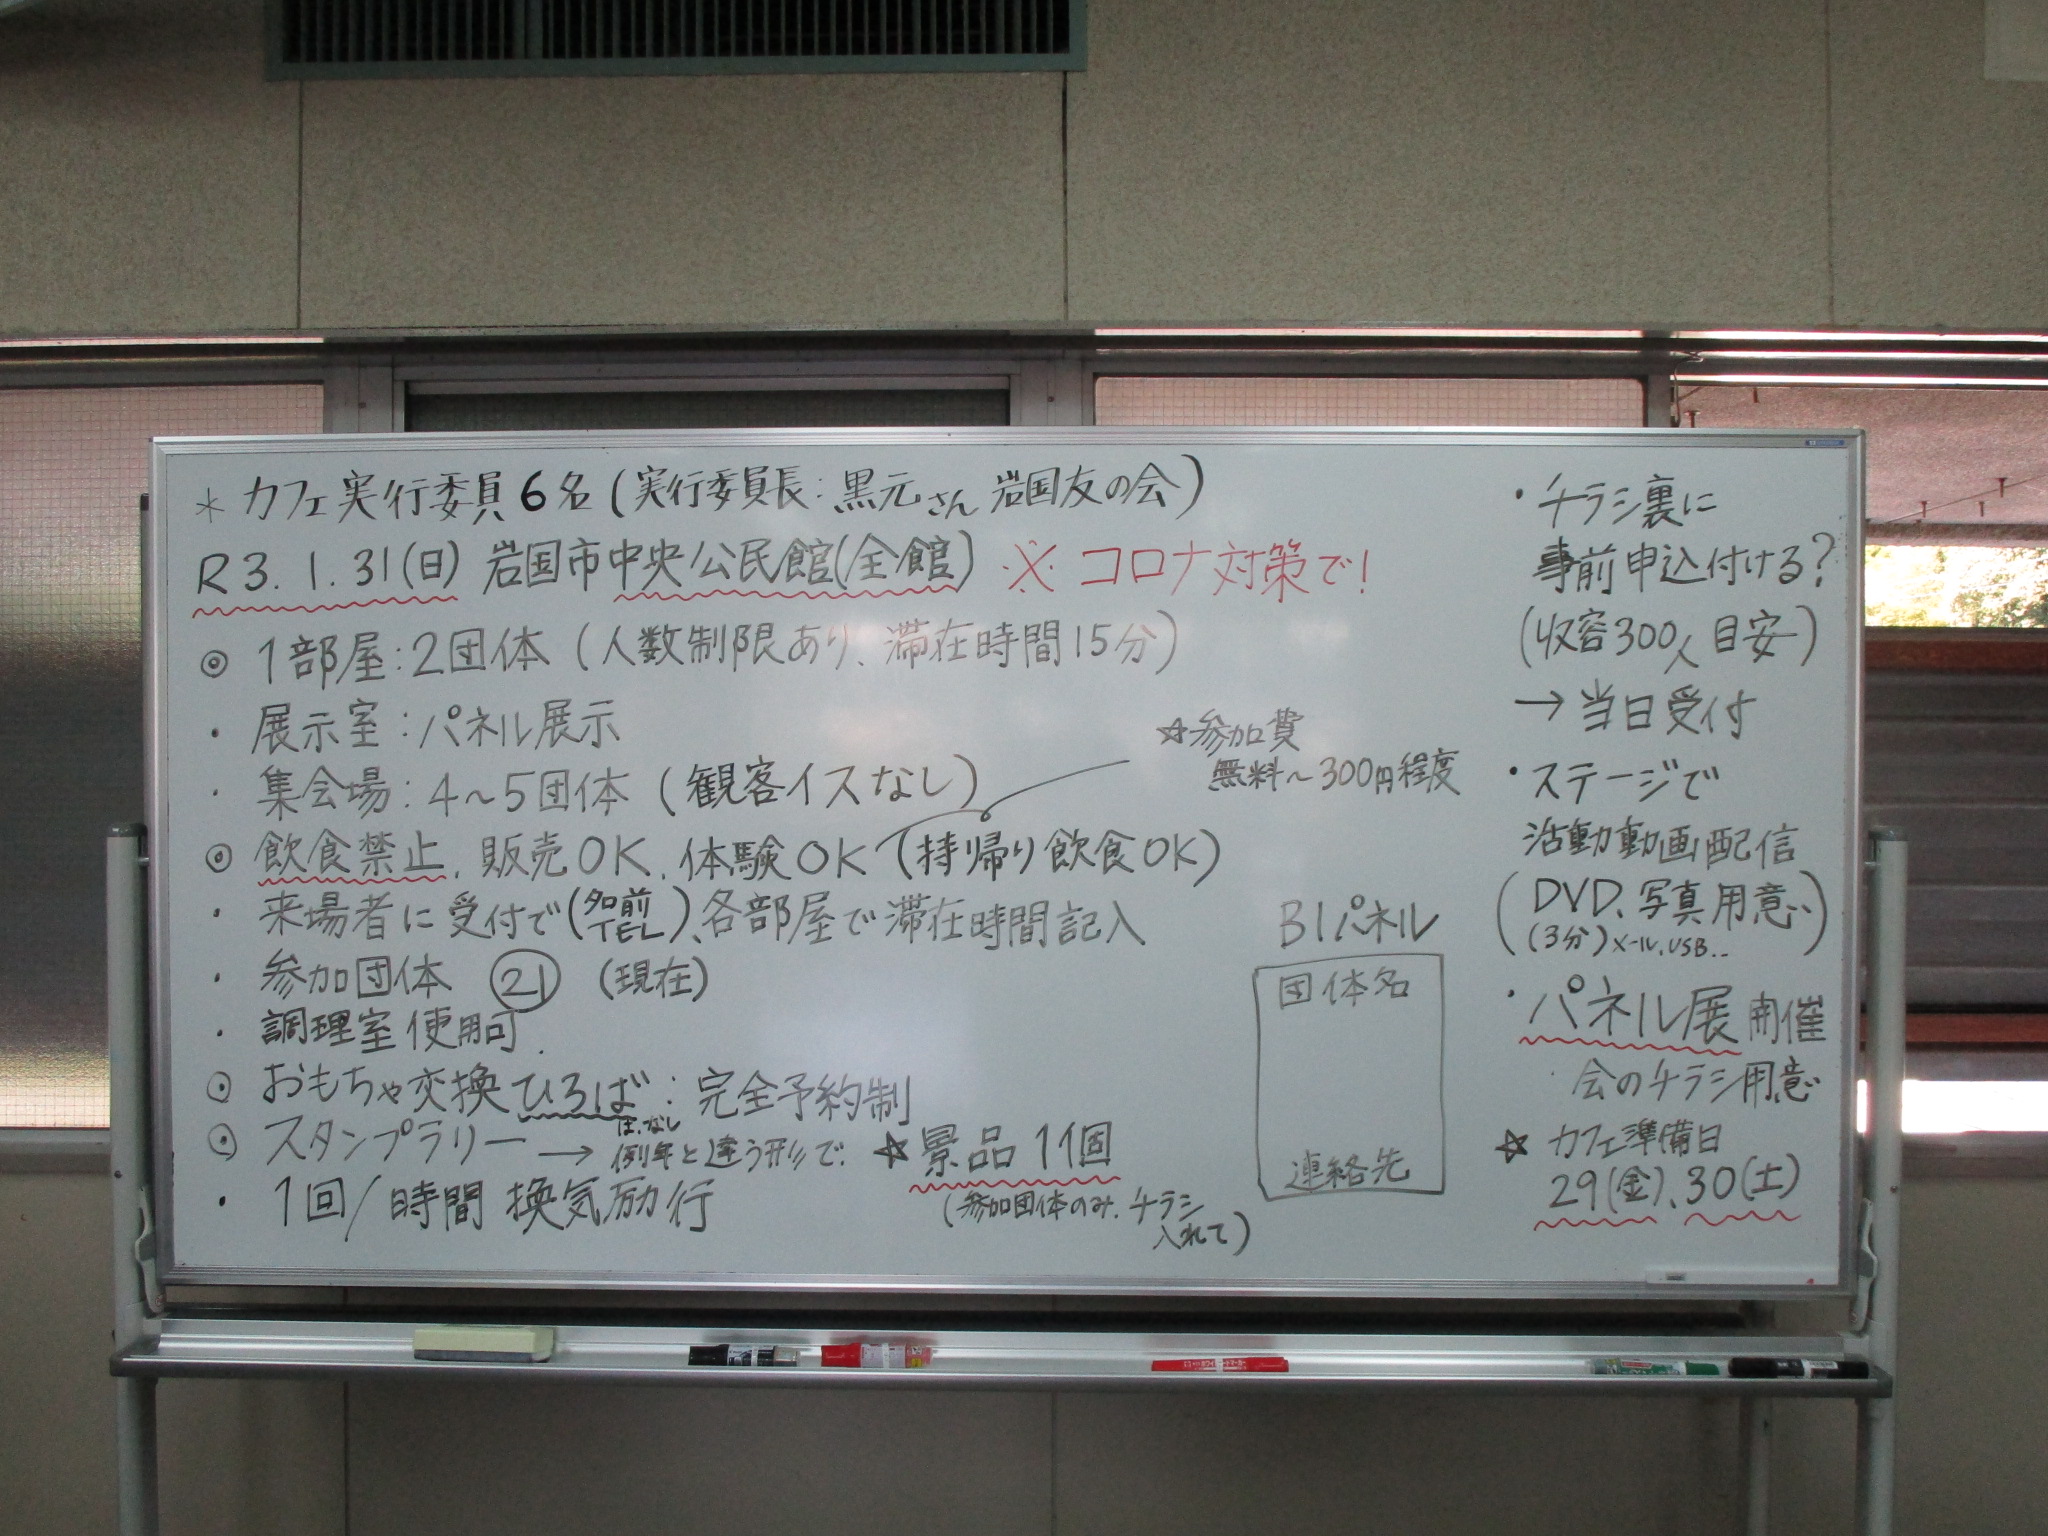 ＊カフェ実行委員6名(実行委員長：黒元さん 岩国友の会)
R3.1.31(日) 岩国市中央公民館(全館) ※コロナ対策で！
◎1部屋：2団体(人数制限あり、滞在時間15分)
・展示室：パネル展示
・集会場：4～5団体(観客イスなし)
☆参加費
無料～300円程度
◎飲食禁止、販売OK、体験OK(持帰り飲食OK)
・来場者に受付で(名前 TEL)、各部屋で滞在時間記入
・参加団体 ㉑ (現在)
・調理室使用可.
◎おもちゃ交換ひろば：完全予約制
◎スタンプラリー → 例年と違う形で.
は、なし
☆景品1個
(参加団体のみ、チラシ
入れて)
・1回/時間 換気励行
B1パネル
団体名
連絡先
・チラシ裏に
事前申込付ける？
(収容300人目安)
→当日受付
・ステージで
活動動画配信
(DVD、写真用意)
(3分)メール、USB..
・パネル展開催
・会のチラシ用意
☆カフェ準備日
29(金)、30(土)